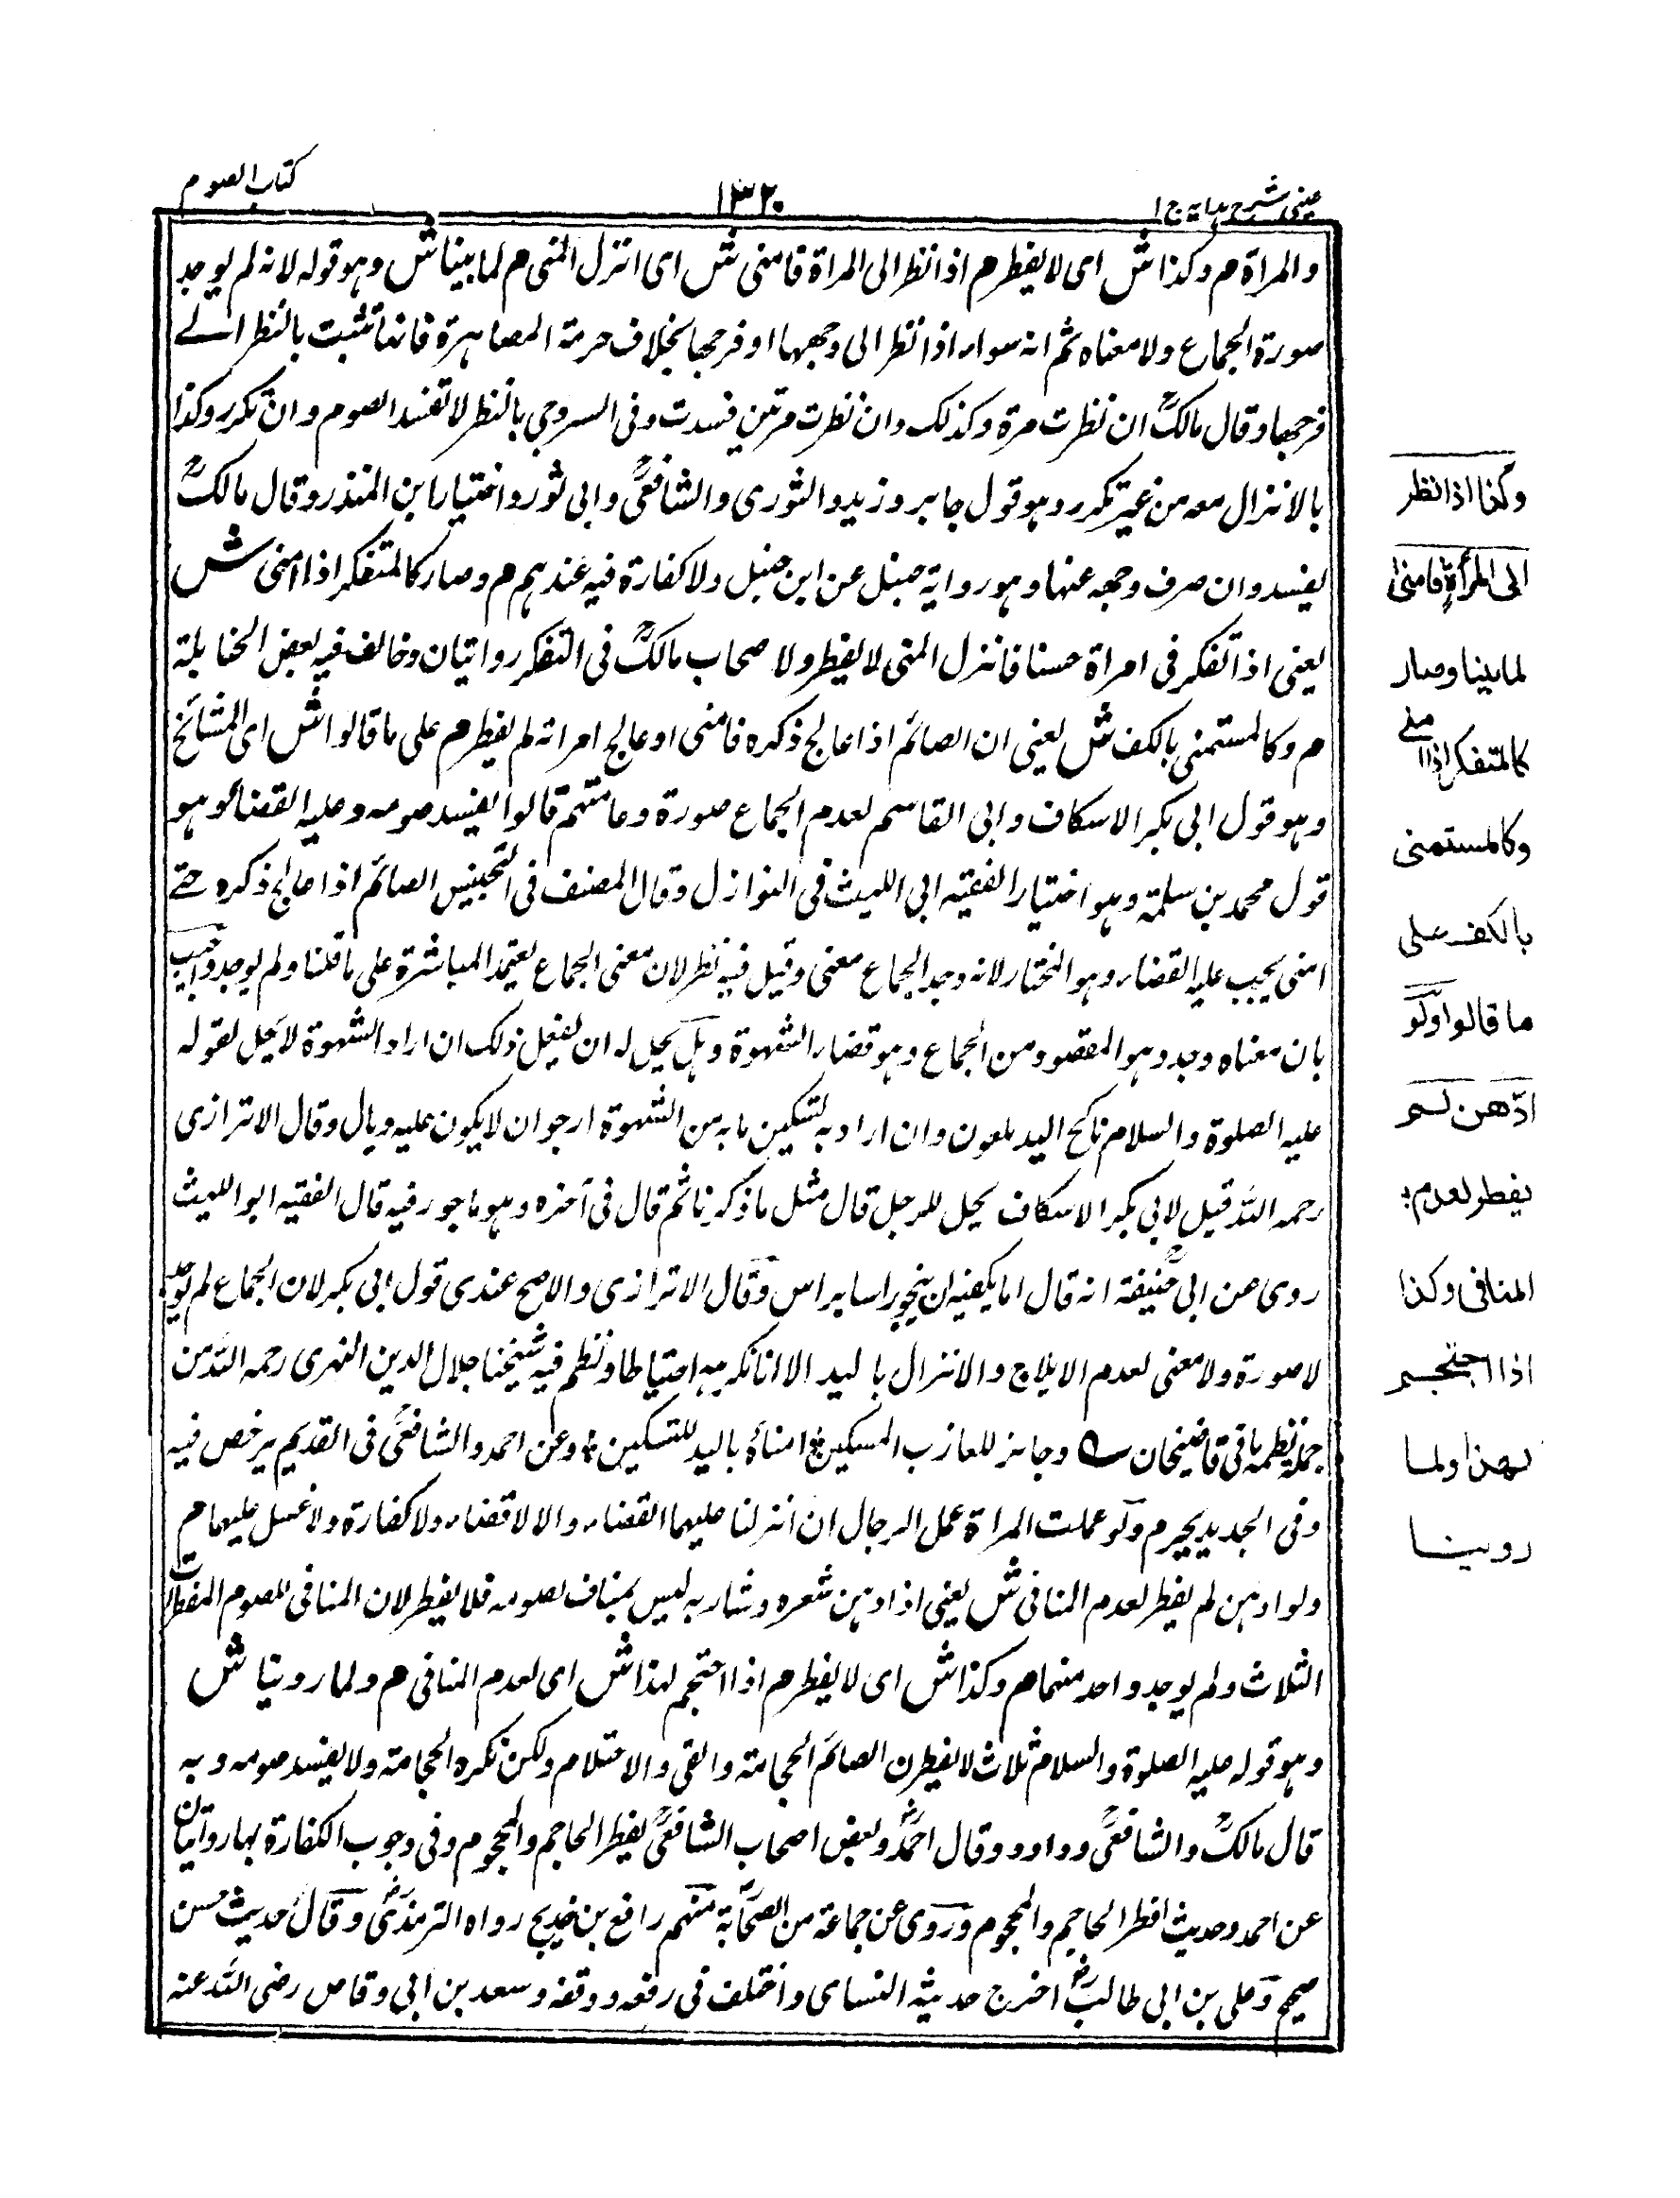 عینی شرح ہدایہ ج ۱
۱۳۲۰
کتاب الصوم
والمراة م وكذا ش اى لا يفطر م اذا نظر الى المراة فامنى ش اى انزل المنى م لما بينا ش وهو قوله لانه لم يوجد
صورة الجماع ولا معناه ثم انه سواء اذا نظر الى وجهها او فرجها بخلاف حرمة المصاهرة فانها تثبت بالنظر الے
فرجها وقال مالكؒ ان نظرت مرة وكذلك وان نظرت مرتين فسدت وفى السروجي بالنظر لا تفسد الصوم وان تكرر وكذا
بالانزال معه من غير تكرر وهو قول جابر وزيد والثورى والشافعىؒ وابى ثور واختيار ابن المنذر وقال مالكؒ
يفسد وان صرف وجهه عنها وهو رواية حنبل عن ابن حنبل ولا كفارة فيه عندهم م وصار كالمتفكر اذا امنى ش
يعنى اذا تفكر فى امراة حسنا فانزل المنى لا يفطر ولا صحاب مالكؒ فى التفكر روايتان وخالف فيه بعض الحنابلة
م وكالمستمنى بالكف ش يعنى ان الصائم اذا عالج ذكره فامنى او عالج امراته لم يفطر م على ما قالوا ش اى المشائخ
وهو قول ابى بكر الاسكاف وابى القاسم لعدم الجماع صورة وعامتهم قالوا يفسد صومه وعليه القضاء وهو
قول محمد بن سلمة وهو اختيار الفقيه ابى الليث فى النوازل وقال المصنف فى التجنيس الصائم اذا عالج ذكره حتے
امنى يجب عليه القضاء وهو المختار لانه وجد الجماع معنى وقيل فيه نظر لان معنى الجماع يعتمد المباشرة على ما قلنا ولم يوجد واجيب
بان معناه وجد وهو المقصود من الجماع وهو قضاء الشهوة وهل يحل له ان يفعل ذلك ان اراد الشهوة لا يحل لقوله
عليه الصلوة والسلام ناكح اليد ملعون وان اراد به تسكين ما به من الشهوة ارجو ان لا يكون عليه وبال وقال الاترازى
رحمه الله قيل لابى بكر الاسكاف يحل للرجل قال مثل ما ذكرنا ثم قال فى آخره وهو ماجور فيه قال الفقيه ابو الليث
روى عن ابى حنيفةؒ انه قال اما يكفيه ان ينجو راسا براس وقال الاترازى والاصح عندى قول ابى بكر لان الجماع لم يوجد
لا صورة ولا معنى لعدم الايلاج والانزال باليد الا انا نكرهه احتياطا ونظم فيه شيخنا جلال الدين النهرى رحمه الله من
جملة نظمه ما فى قاضيخان وجائز للعازب المسكين امناؤه باليد للتسكين وعن احمد والشافعىؒ فى القديم يرخص فيه
وفى الجديد يحرم ولو عملت المراة عمل الرجال ان انزلنا عليهما القضاء والا لا قضاء ولا كفارة ولا غسل عليهما م
ولو ادهن لم يفطر لعدم المنافى ش يعنى اذا دهن شعره وشاربه ليس بمناف لصومه فلا يفطر لان المنافى للصوم المفطرات
الثلاث ولم يوجد واحد منها م وكذا ش اى لا يفطر م اذا احتجم لهذا ش اى لعدم المنافى م ولما روينا ش
وهو قوله عليه الصلوة والسلام ثلاث لا يفطرن الصائم الحجامة والقى والاحتلام ولكن تكره الحجامة ولا يفسد صومه وبه
قال مالكؒ والشافعىؒ وداود وقال احمدؒ وبعض اصحاب الشافعىؒ يفطر الحاجم والمحجوم وفى وجوب الكفارة بها روايتان
عن احمد وحديث افطر الحاجم والمحجوم وروى عن جماعة من الصحابة منهم رافع بن خديج رواه الترمذىؒ وقال حديث حسن
صحيح وعلى بن ابى طالبؓ اخرج حديثه النساى واختلف فى رفعه ووقفه وسعد بن ابى وقاص رضى الله عنه
وكذا اذا نظر
الى المرأة فامنى
لما بينا وصار
كالمتفكر اذا امنى
وكالمستمنى
بالكف على
ما قالوا ولو
ادّهن لم
يفطر لعدم
المنافى وكذا
اذا احتجم
لهذا ولما
روينا